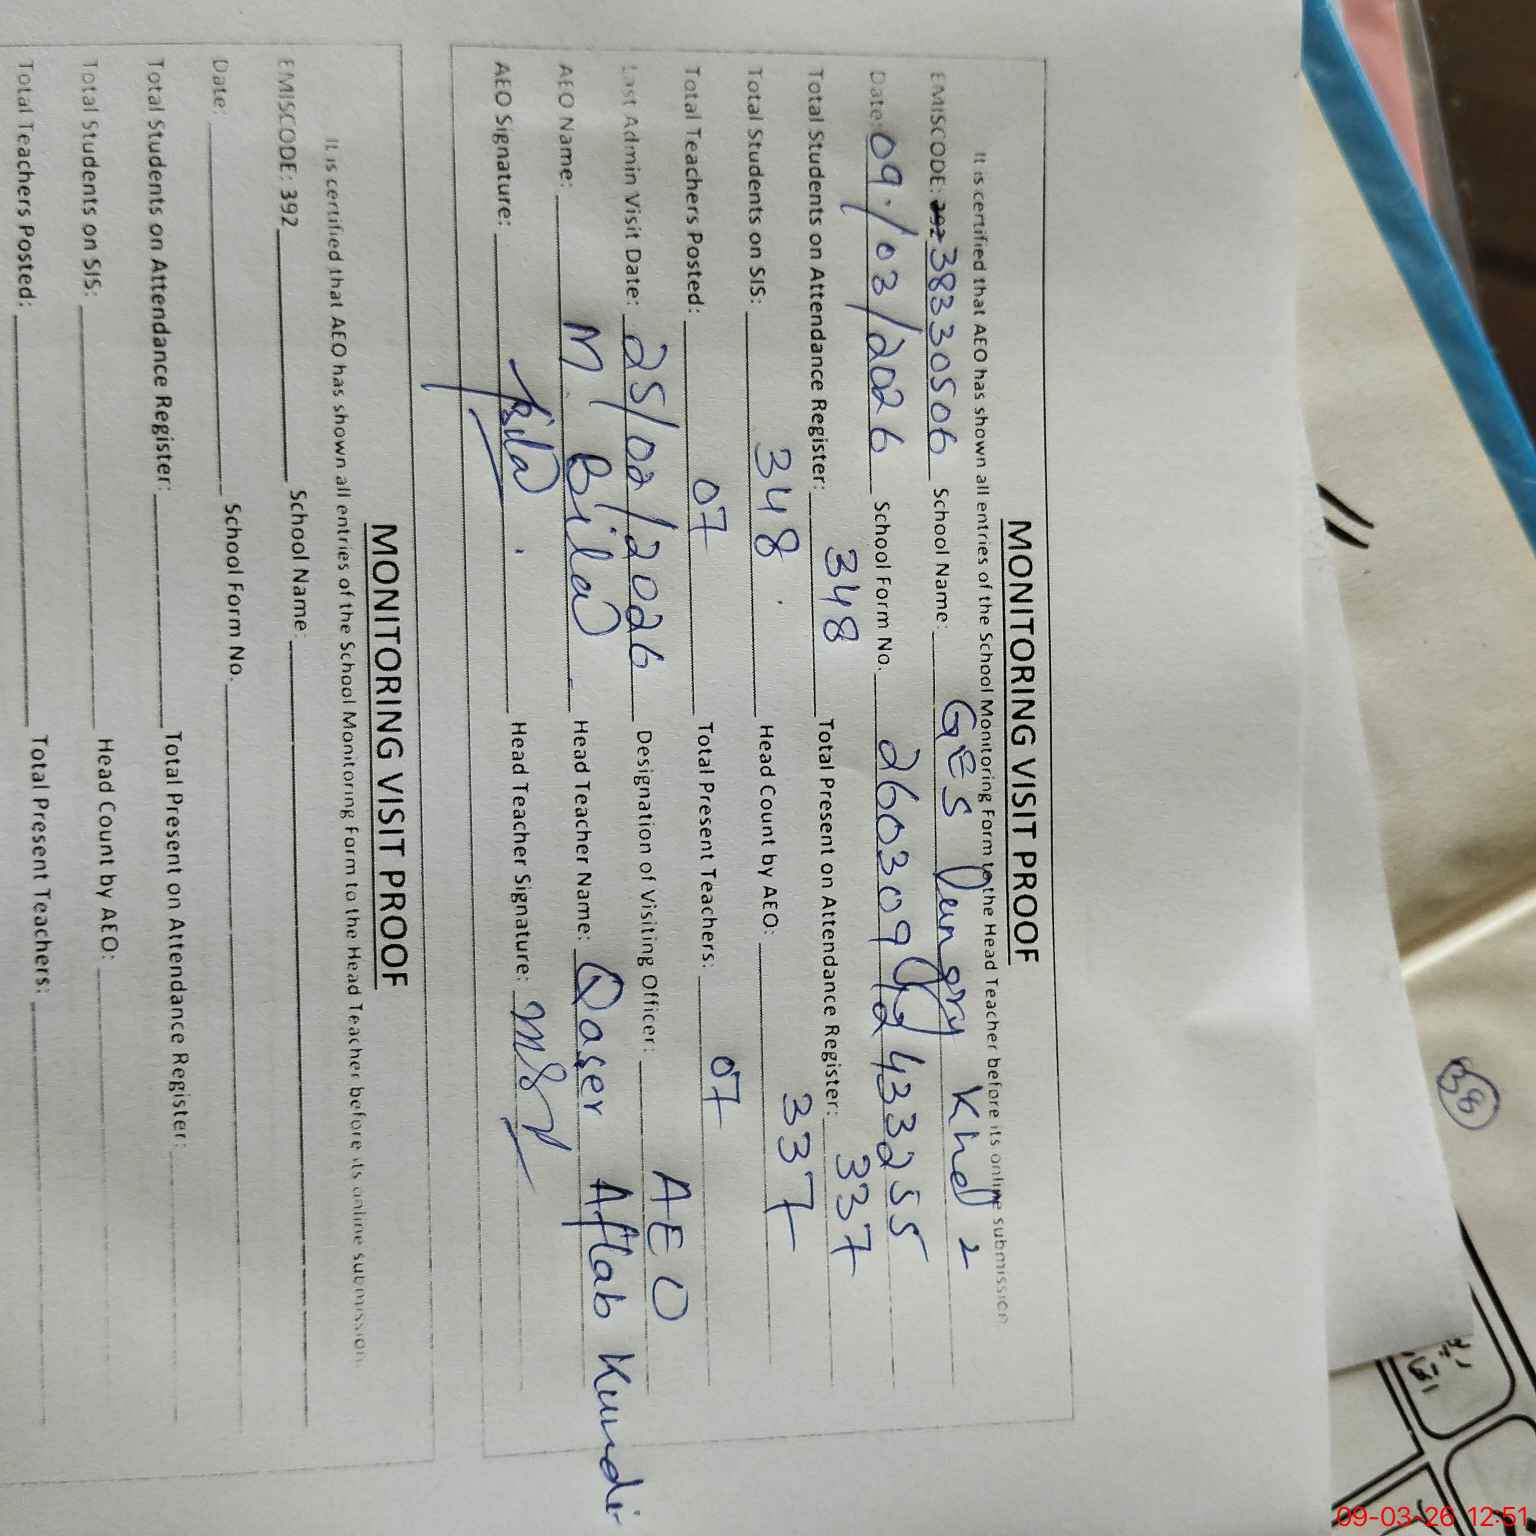 MONITORING VISIT PROOF
It is certified that AEO has shown all entries of the School Monitoring Form to the Head Teacher before its online submission
EMISCODE: 38330506 School Name: GES Khel 2
Date: 09/03/2026 School Form No. 433255
Total Students on Attendance Register: 348 Total Present on Attendance Register: 337
Total Students on SIS: 348 Head Count by AEO: 337
Total Teachers Posted: 07 Total Present Teachers: 07
Last Admin Visit Date: 25/02/2026 Designation of Visiting Officer: AEO
AEO Name: M. Bilal Head Teacher Name: Qaser Aftab Kundi
AEO Signature: Bilal Head Teacher Signature:
MONITORING VISIT PROOF
It is certified that AEO has shown all entries of the School Monitoring Form to the Head Teacher before its online submission.
EMISCODE: 392 School Name:
Date: School Form No.
Total Students on Attendance Register: Total Present on Attendance Register:
Total Students on SIS: Head Count by AEO:
Total Teachers Posted: Total Present Teachers:
38
09-03-26 12:51